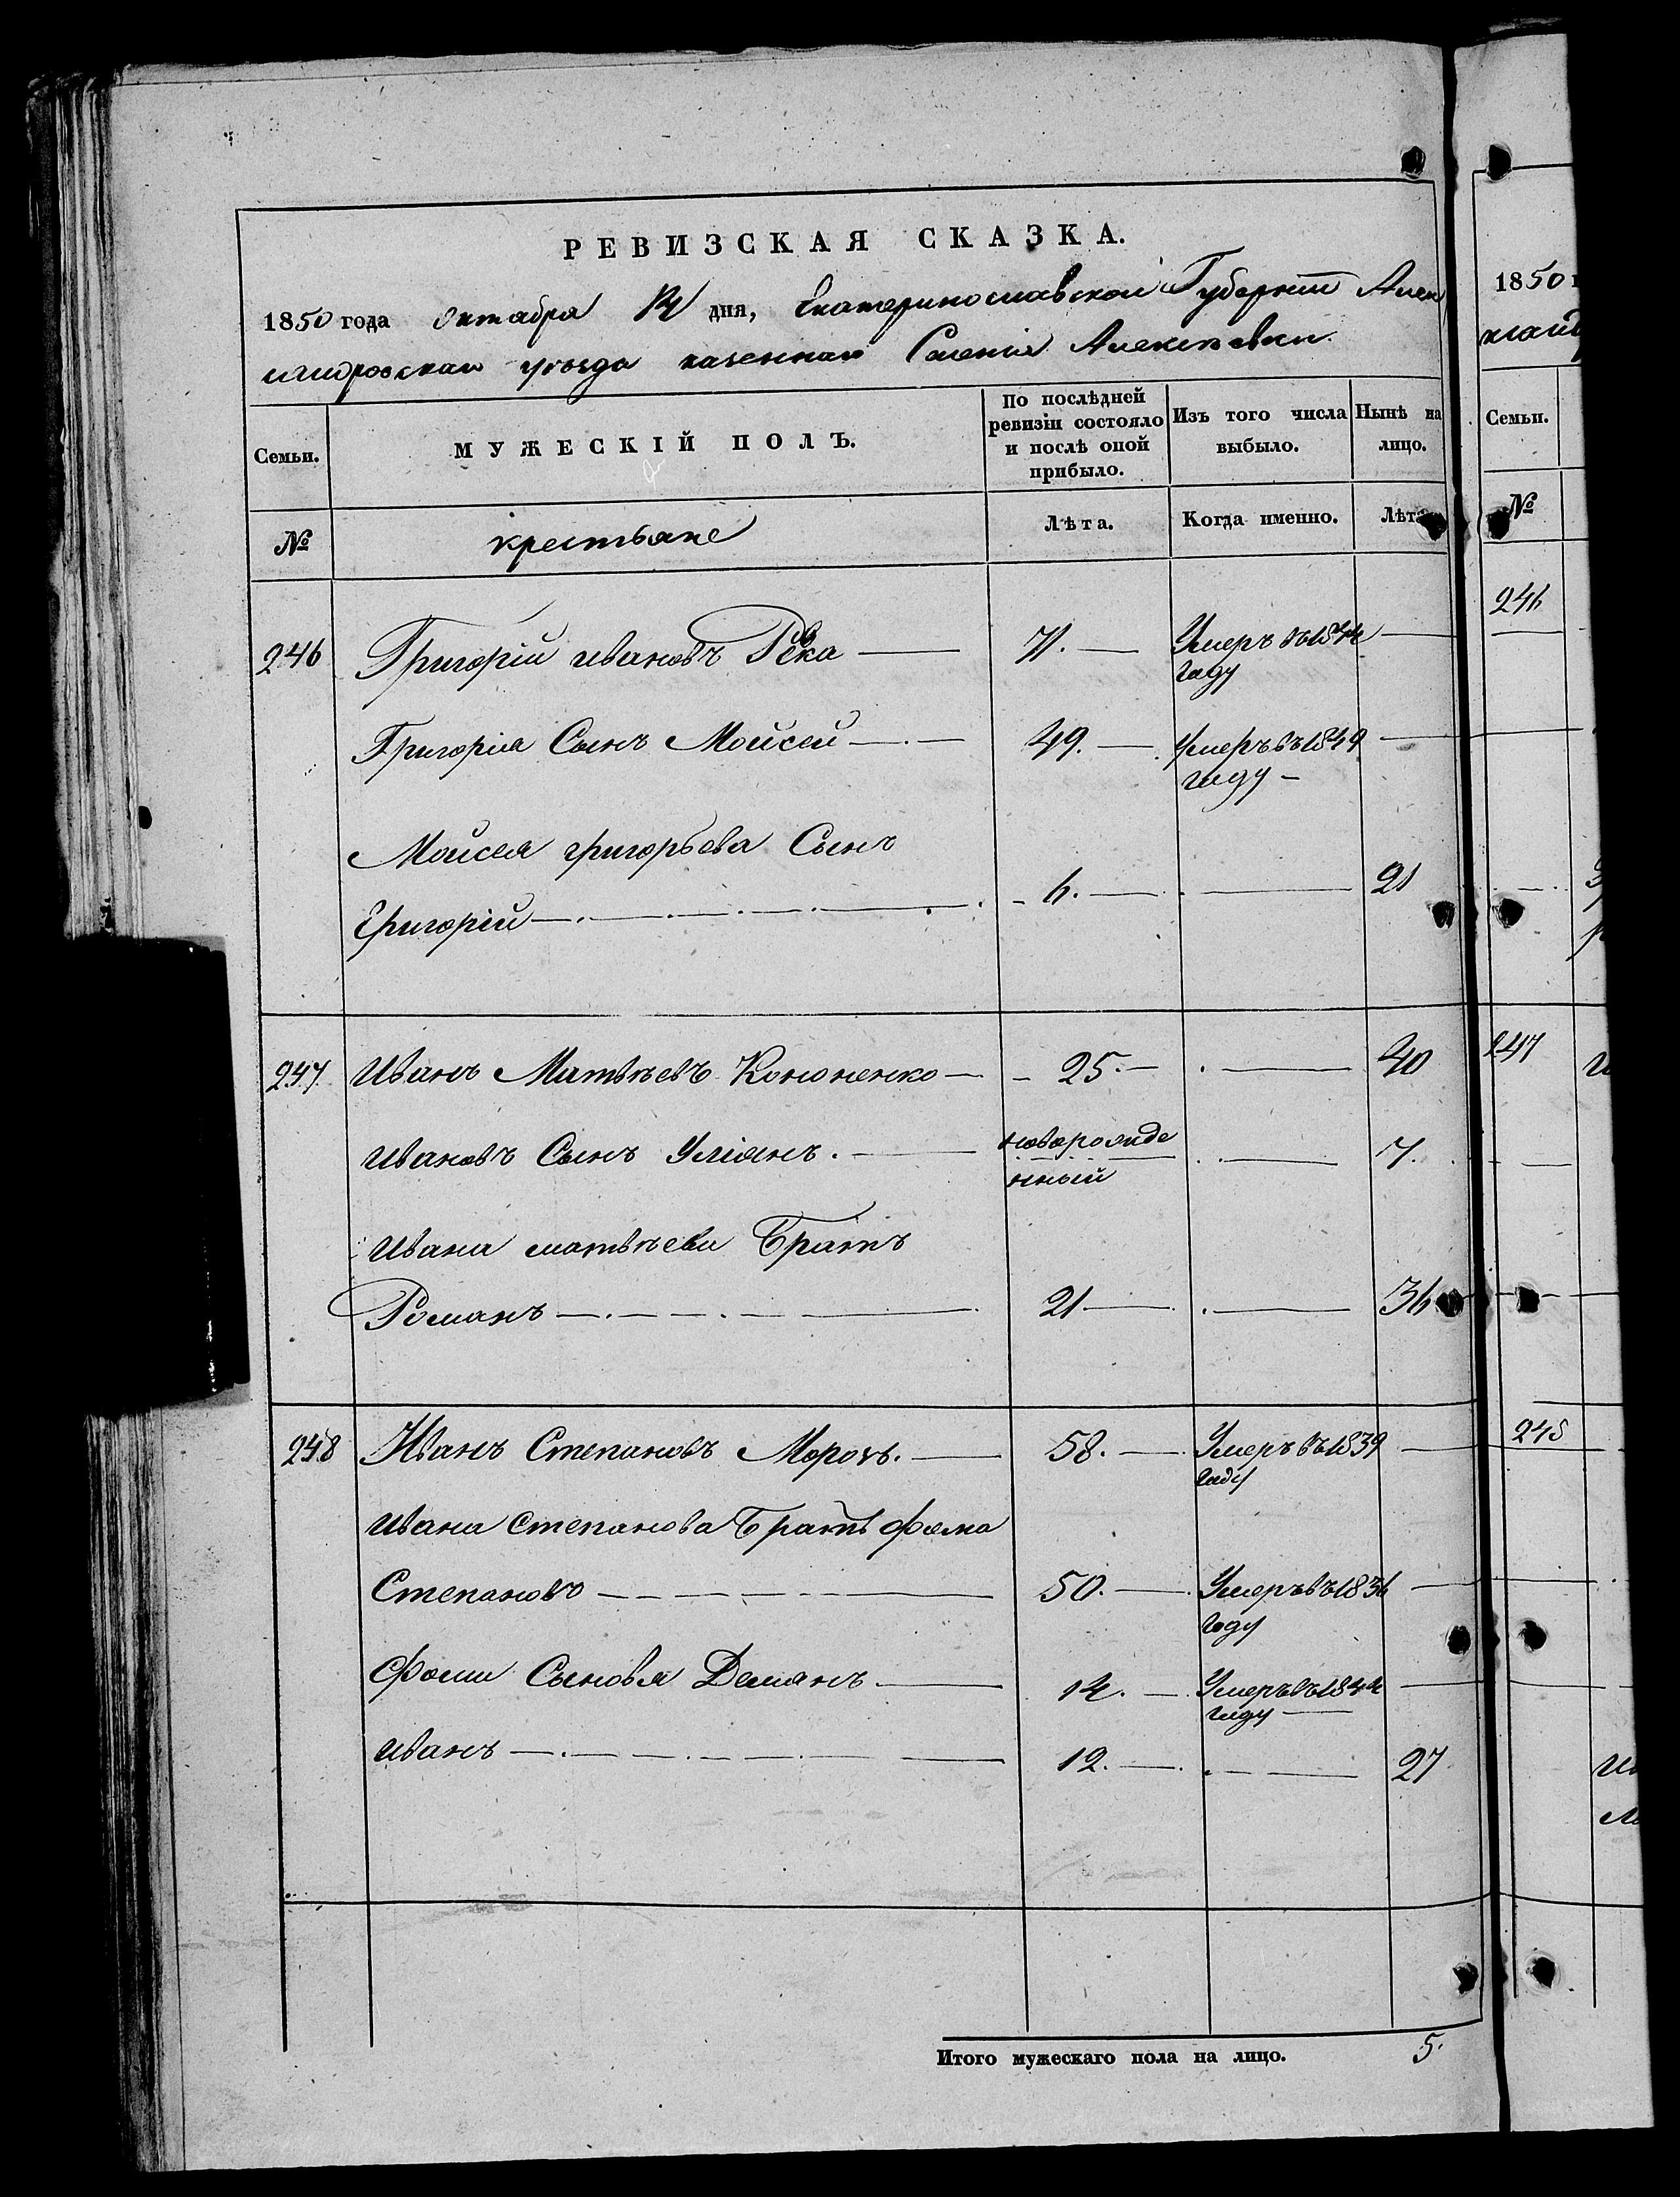 РЕВИЗСКАЯ СКАЗКА.
1850 года октября 14 дня, Екатеринославской Губерніи Алек
сандровскаго уезда казеннаго Селенія Алексѣевки
Семьи. МУЖЕСКІЙ ПОЛЪ. По послѣдней ревизіи состояло и послѣ оной прибыло. Изъ того числа выбыло. Нынѣ на лицо.
№ крестьяне Лѣта. Когда именно. Лѣта
246 Григорій ивановъ Рѣка — 71. — Умеръ въ 1844 —
году
Григорія Сынъ Мойсей — 49. — умеръ въ 1849 —
году —
Моисея григорьева Сынъ
Григорій — 6. — — 21
247 Иванъ Матвѣевъ Кононенко — 25. — — 40
ивановъ Сынъ Уліянъ. — новорожде
нный — 7.
Ивана матвѣева Братъ
Романъ — 21 — — 36
248 Иванъ Степановъ Морозъ. — 58. — Умеръ въ 1839 —
году
ивана степанова Братъ Фома
Степановъ — 50. — Умеръ въ 1836 —
году
Фомы Сыновья Демянъ — 14. — Умеръ въ 1844 —
году —
иванъ — 12. — — 27
Итого мужескаго пола на лицо. 5.
1850
Семьи.
№
246
247
248